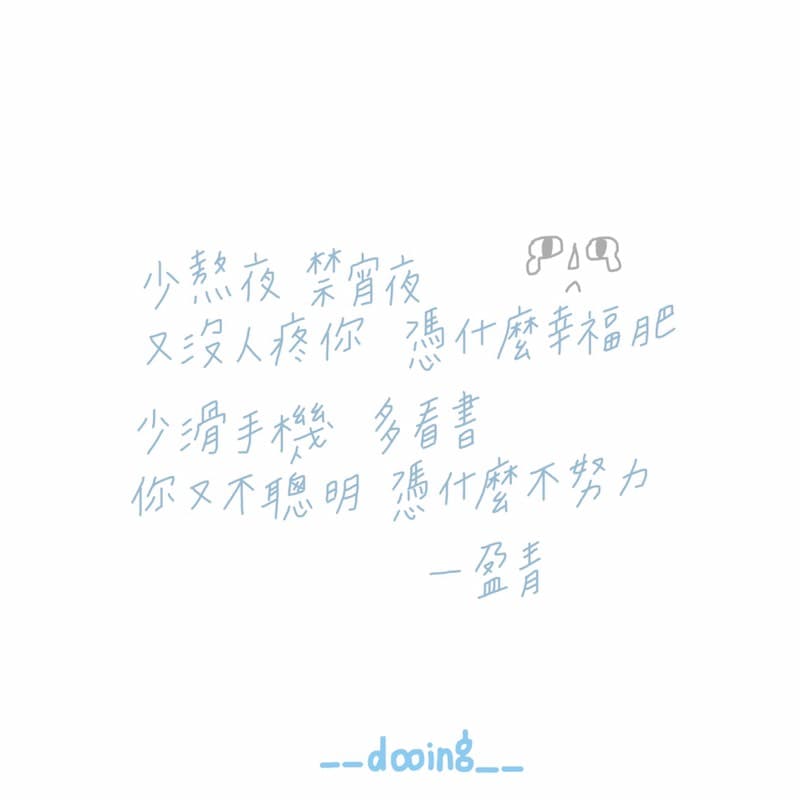 少熬夜 禁宵夜
又沒人疼你 憑什麼幸福肥
少滑手機 多看書
你又不聰明 憑什麼不努力
—盈青
__dooing__